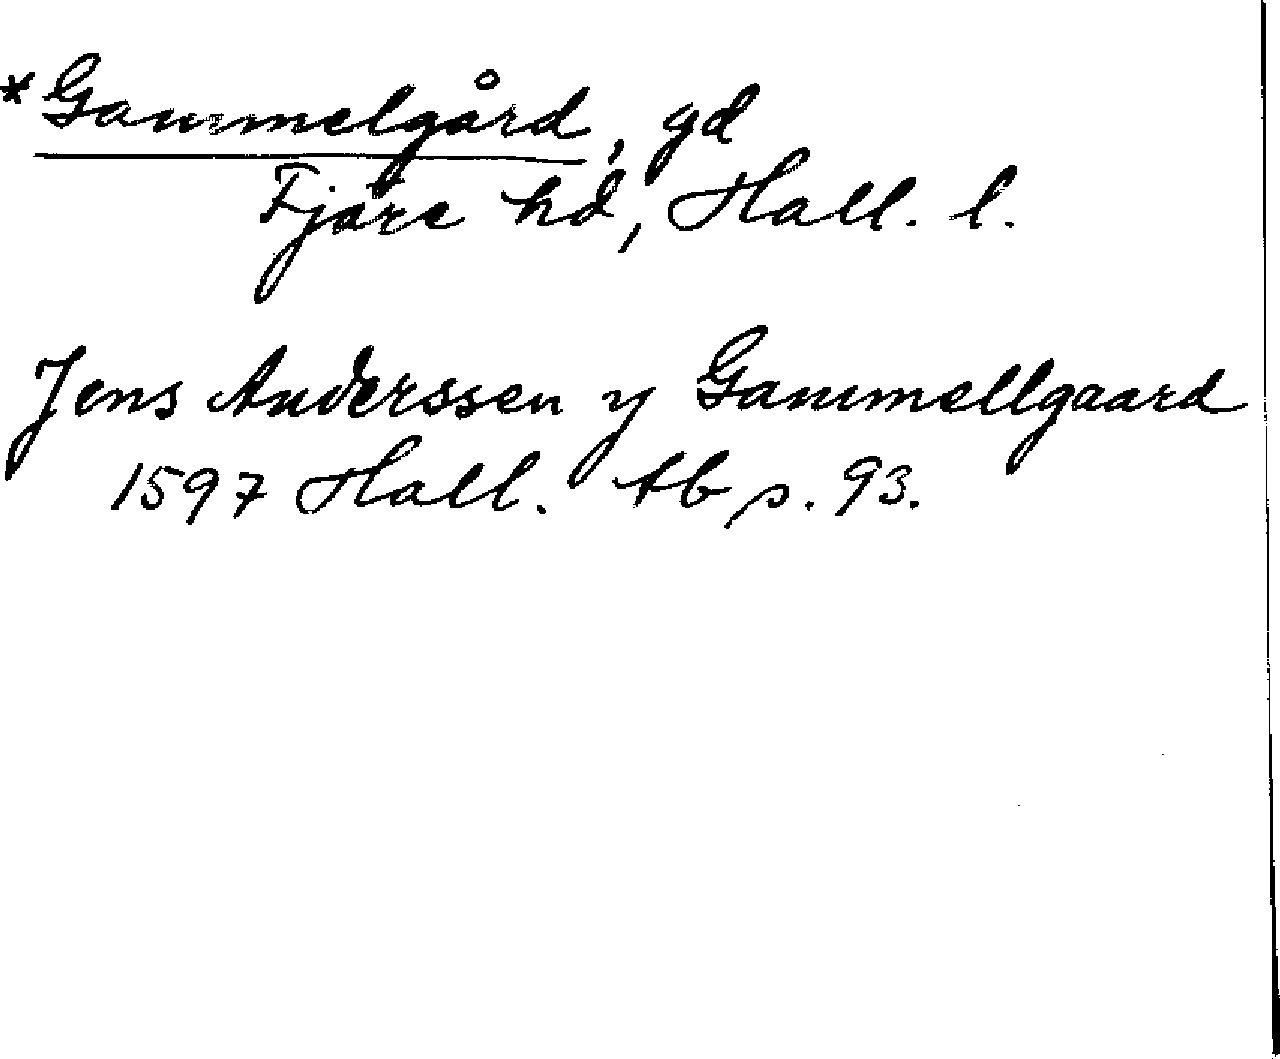 *Gammelgård, gd
Fjäre hd, Hall. l.
Jens Anderssen y Gammellgaard
1597 Hall. tb s. 93.